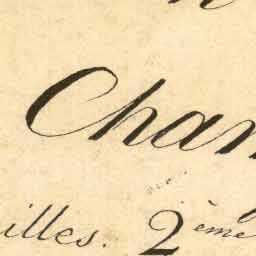 Cham
illes. 2ème